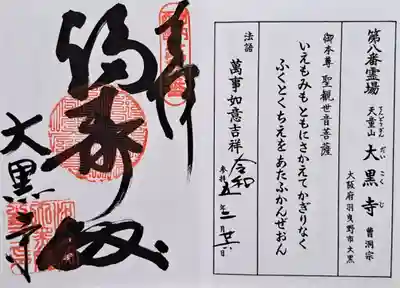 第八番霊場
天童山 大黒寺 曹洞宗
だいこくじ
大阪府羽曳野市大黒
御本尊 聖観世音菩薩
いえもみもともにさかえてかぎりなく
ふくとくちえをあたふかんぜおん
法語 萬事如意吉祥
令和
参拝 五年 二月 廿六日
奉拝
福寿殿
大黒寺